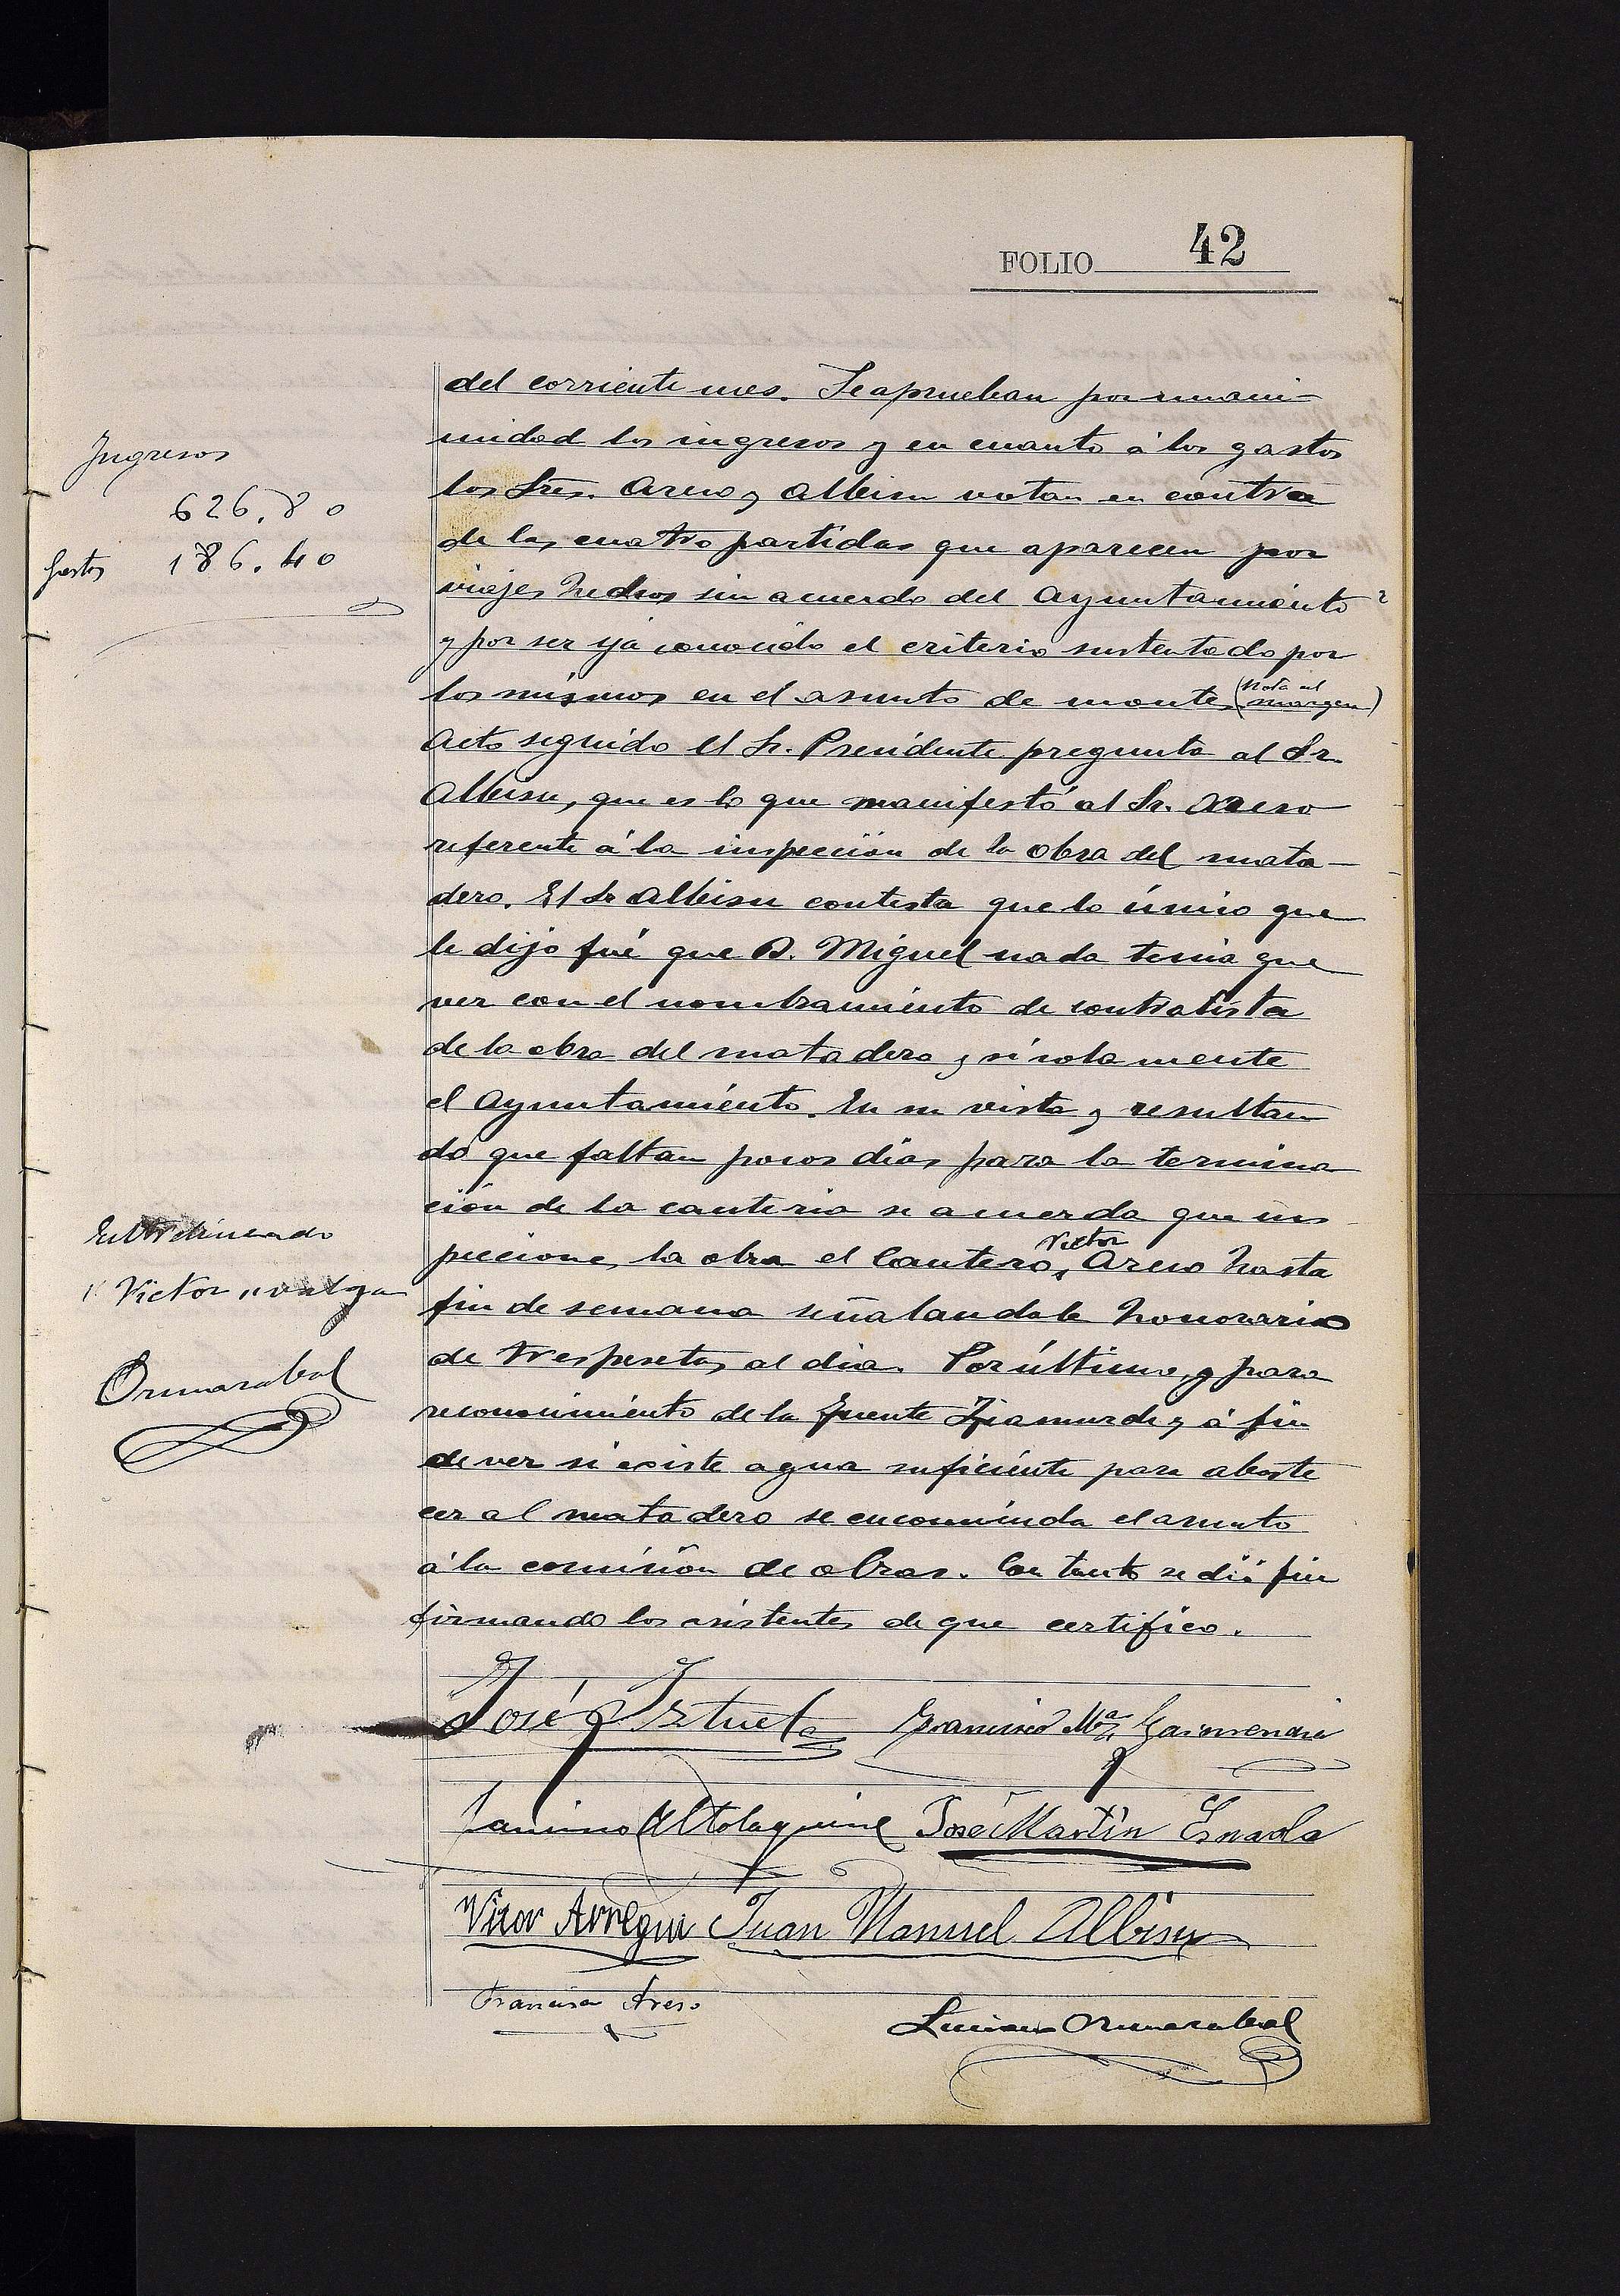 FOLIO 42
del corriente mes. Se aprueban por unani-
midad los ingresos y en cuanto á los gastos
los Sres. Areso y Albisu votan en contra
de las cuatro partidas que aparecen por
viajes hechos sin acuerdo del Ayuntamiento
y por ser ya conocido el criterio sustentado por
los mismos en el asunto de montes (Nota al margen)
Acto seguido el Sr. Presidente pregunta al Sr.
Albisu, que es lo que manifestó al Sr. Areso
referente á la inspección de la obra del mata-
dero. El Sr Albisu contesta que lo único que
le dijo fué que D. Miguel nada tenia que
ver con el nombramiento de contratista
de la obra del matadero y si solamente
el Ayuntamiento. En su vista y resultan
do que faltan pocos dias para la termina
ción de la canteria se acuerda que ins
peccione la obra el Cantero, Victor Areso hasta
fin de semana señalandole honorarios
de tres pesetas al dia. Por último, y para
reconocimiento de la fuente y á fin
de ver si existe agua suficiente para abaste
cer al matadero se encomienda el asunto
á la comisión de obras. Con tanto se dió fin
firmando los asistentes de que certifico.
Ingresos
626,80
Gastos 186.40
Entrelineado
"Victor" valga
Ormazabal
José Iztueta Francisco Mª Garmendia
Altolaguirre José Martin Esnaola
Victor Arregui Juan Manuel Albisu
Francisco Areso
Luciano Ormazabal